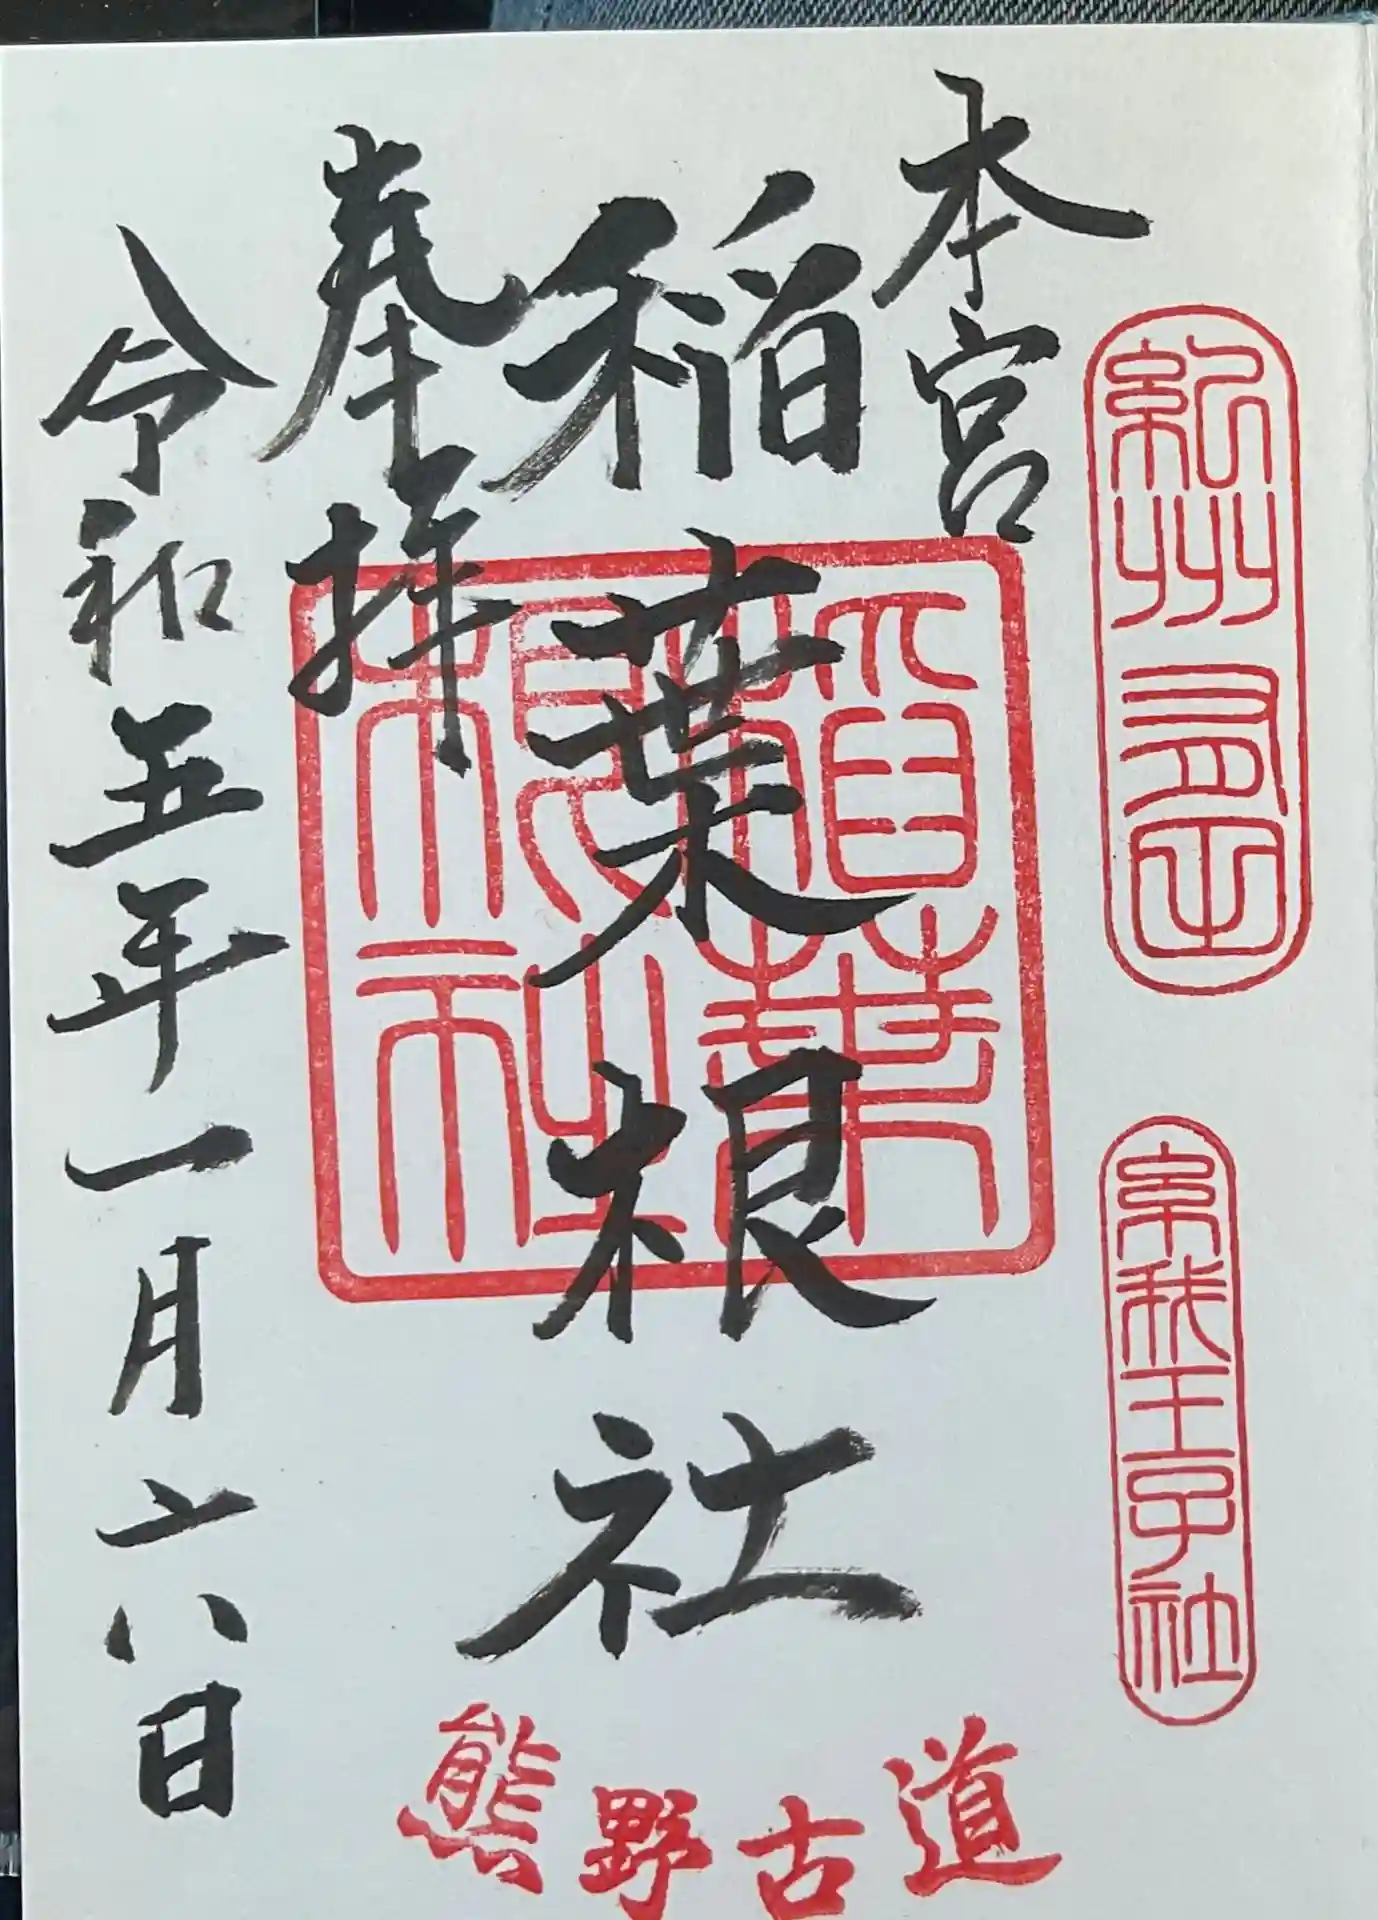 本宮
紀州有田
糸我王子社
稲葉根社
稲葉根社
奉拝
令和五年一月六日
熊野古道